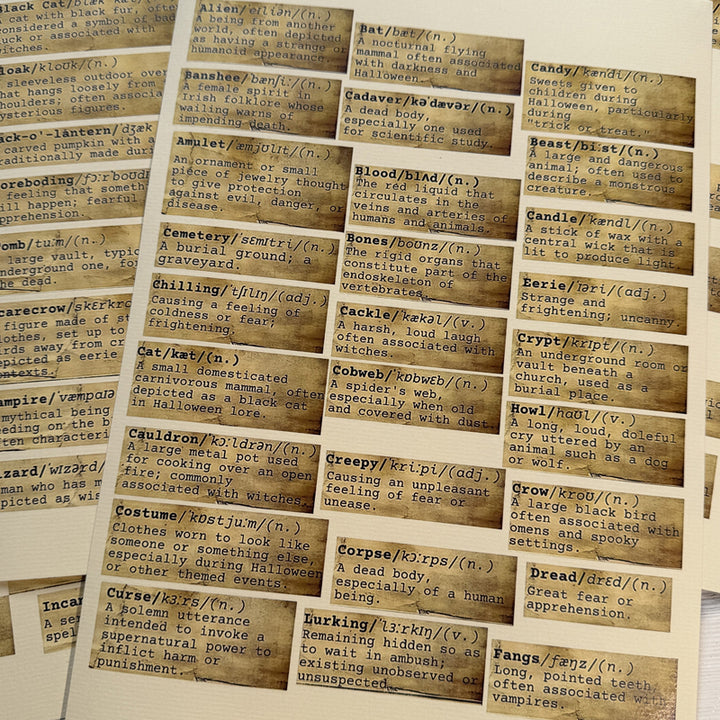 Black Cat/
considered a symbol of bad
witches.
Cloak/kloʊk/(n.)
sleeveless outdoor over
that hangs loosely from
shoulders; often associa
mysterious figures.
Jack-o'-lantern/dʒæk
carved pumpkin with a
traditionally made duri
Foreboding/fɔːrˈboʊdɪ
feeling that someth
will happen; fearful
apprehension.
Tomb/tuːm/(n.)
large vault, typic
underground one, fo
the dead.
Scarecrow/ˈskɛrkro
figure made of st
clothes, set up to
birds away, from cr
depicted as eerie
contexts.
Vampire/ˈvæmpaɪə
mythical being
feeding on the b
often characteri
Wizard/ˈwɪzərd/
man who has m
depicted as wis
Incan
A ser
spel
Alien/ˈeɪliən/(n.)
A being from another
world, often depicted
as having a strange or
humanoid appearance.
Banshee/ˈbænʃiː/(n.)
A female spirit in
Irish folklore whose
wailing warns of
impending death.
Amulet/ˈæmjʊlɪt/(n.)
An ornament or small
piece of jewelry thought
to give protection
against evil, danger, or
disease.
Cemetery/ˈsɛmɪtri/(n.)
A burial ground; a
graveyard.
Chilling/ˈtʃɪlɪŋ/(adj.)
Causing a feeling of
coldness or fear;
frightening.
Cat/kæt/(n.)
A small domesticated
carnivorous mammal, often
depicted as a black cat
in Halloween lore.
Cauldron/ˈkɔːldrən/(n.)
A large metal pot used
for cooking over an open
fire; commonly
associated with witches.
Costume/ˈkɒstjuːm/(n.)
Clothes worn to look like
someone or something else,
especially during Halloween
or other themed events.
Curse/kɜːrs/(n.)
A solemn utterance
intended to invoke a
supernatural power to
inflict harm or
punishment.
Bat/bæt/(n.)
A nocturnal flying
mammal often associated
with darkness and
Halloween.
Cadaver/kəˈdævər/(n.)
A dead body,
especially one used
for scientific study.
Blood/blʌd/(n.)
The red liquid that
circulates in the
veins and arteries of
humans and animals.
Bones/boʊnz/(n.)
The rigid organs that
constitute part of the
endoskeleton of
vertebrates.
Cackle/ˈkækəl/(v.)
A harsh, loud laugh
often associated with
witches.
Cobweb/ˈkɒbwɛb/(n.)
A spider's web,
especially when old
and covered with dust.
Creepy/ˈkriːpi/(adj.)
Causing an unpleasant
feeling of fear or
unease.
Corpse/kɔːrps/(n.)
A dead body,
especially of a human
being.
Lurking/ˈlɜːrkɪŋ/(v.)
Remaining hidden so as
to wait in ambush;
existing unobserved or
unsuspected.
Candy/ˈkændi/(n.)
Sweets given to
children during
Halloween, particularly
during
"trick or treat."
Beast/biːst/(n.)
A large and dangerous
animal; often used to
describe a monstrous
creature.
Candle/ˈkændl/(n.)
A stick of wax with a
central wick that is
lit to produce light
Eerie/ˈɪəri/(adj.)
Strange and
frightening; uncanny.
Crypt/krɪpt/(n.)
An underground room or
vault beneath a
church, used as a
burial place.
Howl/haʊl/(v.)
A long, loud, doleful
cry uttered by an
animal such as a dog
or wolf.
Crow/kroʊ/(n.)
A large black bird
often associated with
omens and spooky
settings.
Dread/drɛd/(n.)
Great fear or
apprehension.
Fangs/fæŋz/(n.)
Long, pointed teeth,
often associated with
vampires.